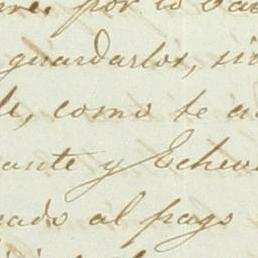 por lo
guardarlos, si
como se a
ante y Echeve
ado al pago